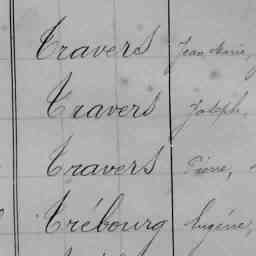 Travers Jean Marie,
Travers Joseph,
Travers Pierre,
Trébourg Eugène,